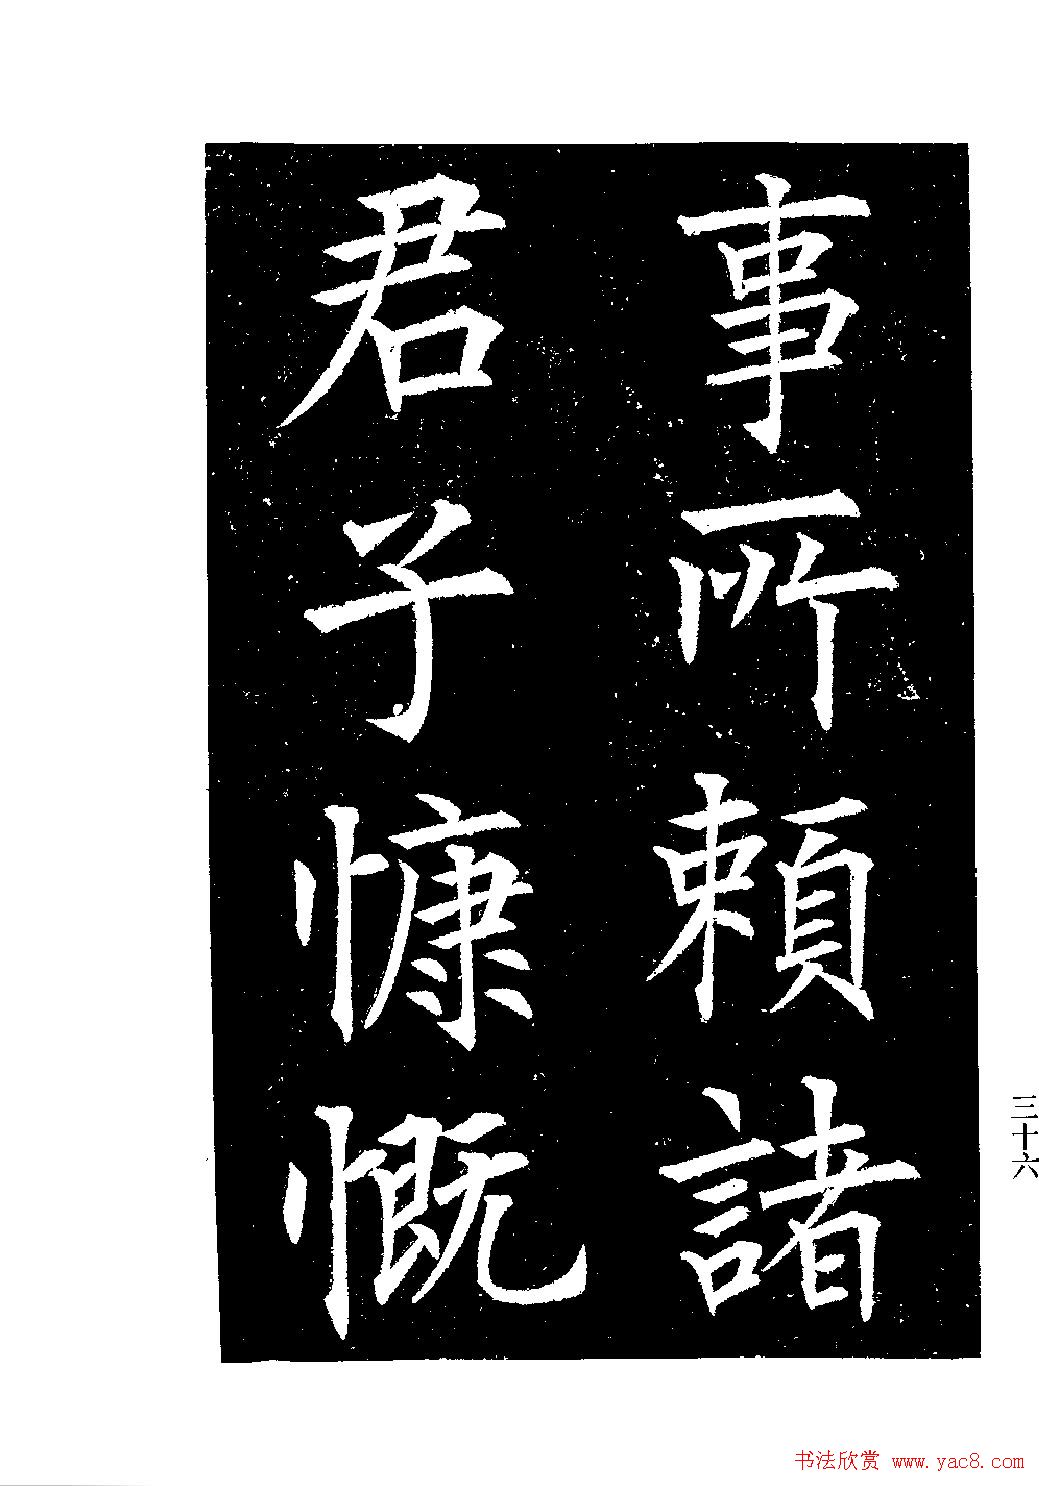 事所賴諸
君子慷慨
三十六
书法欣赏 www.yac8.com